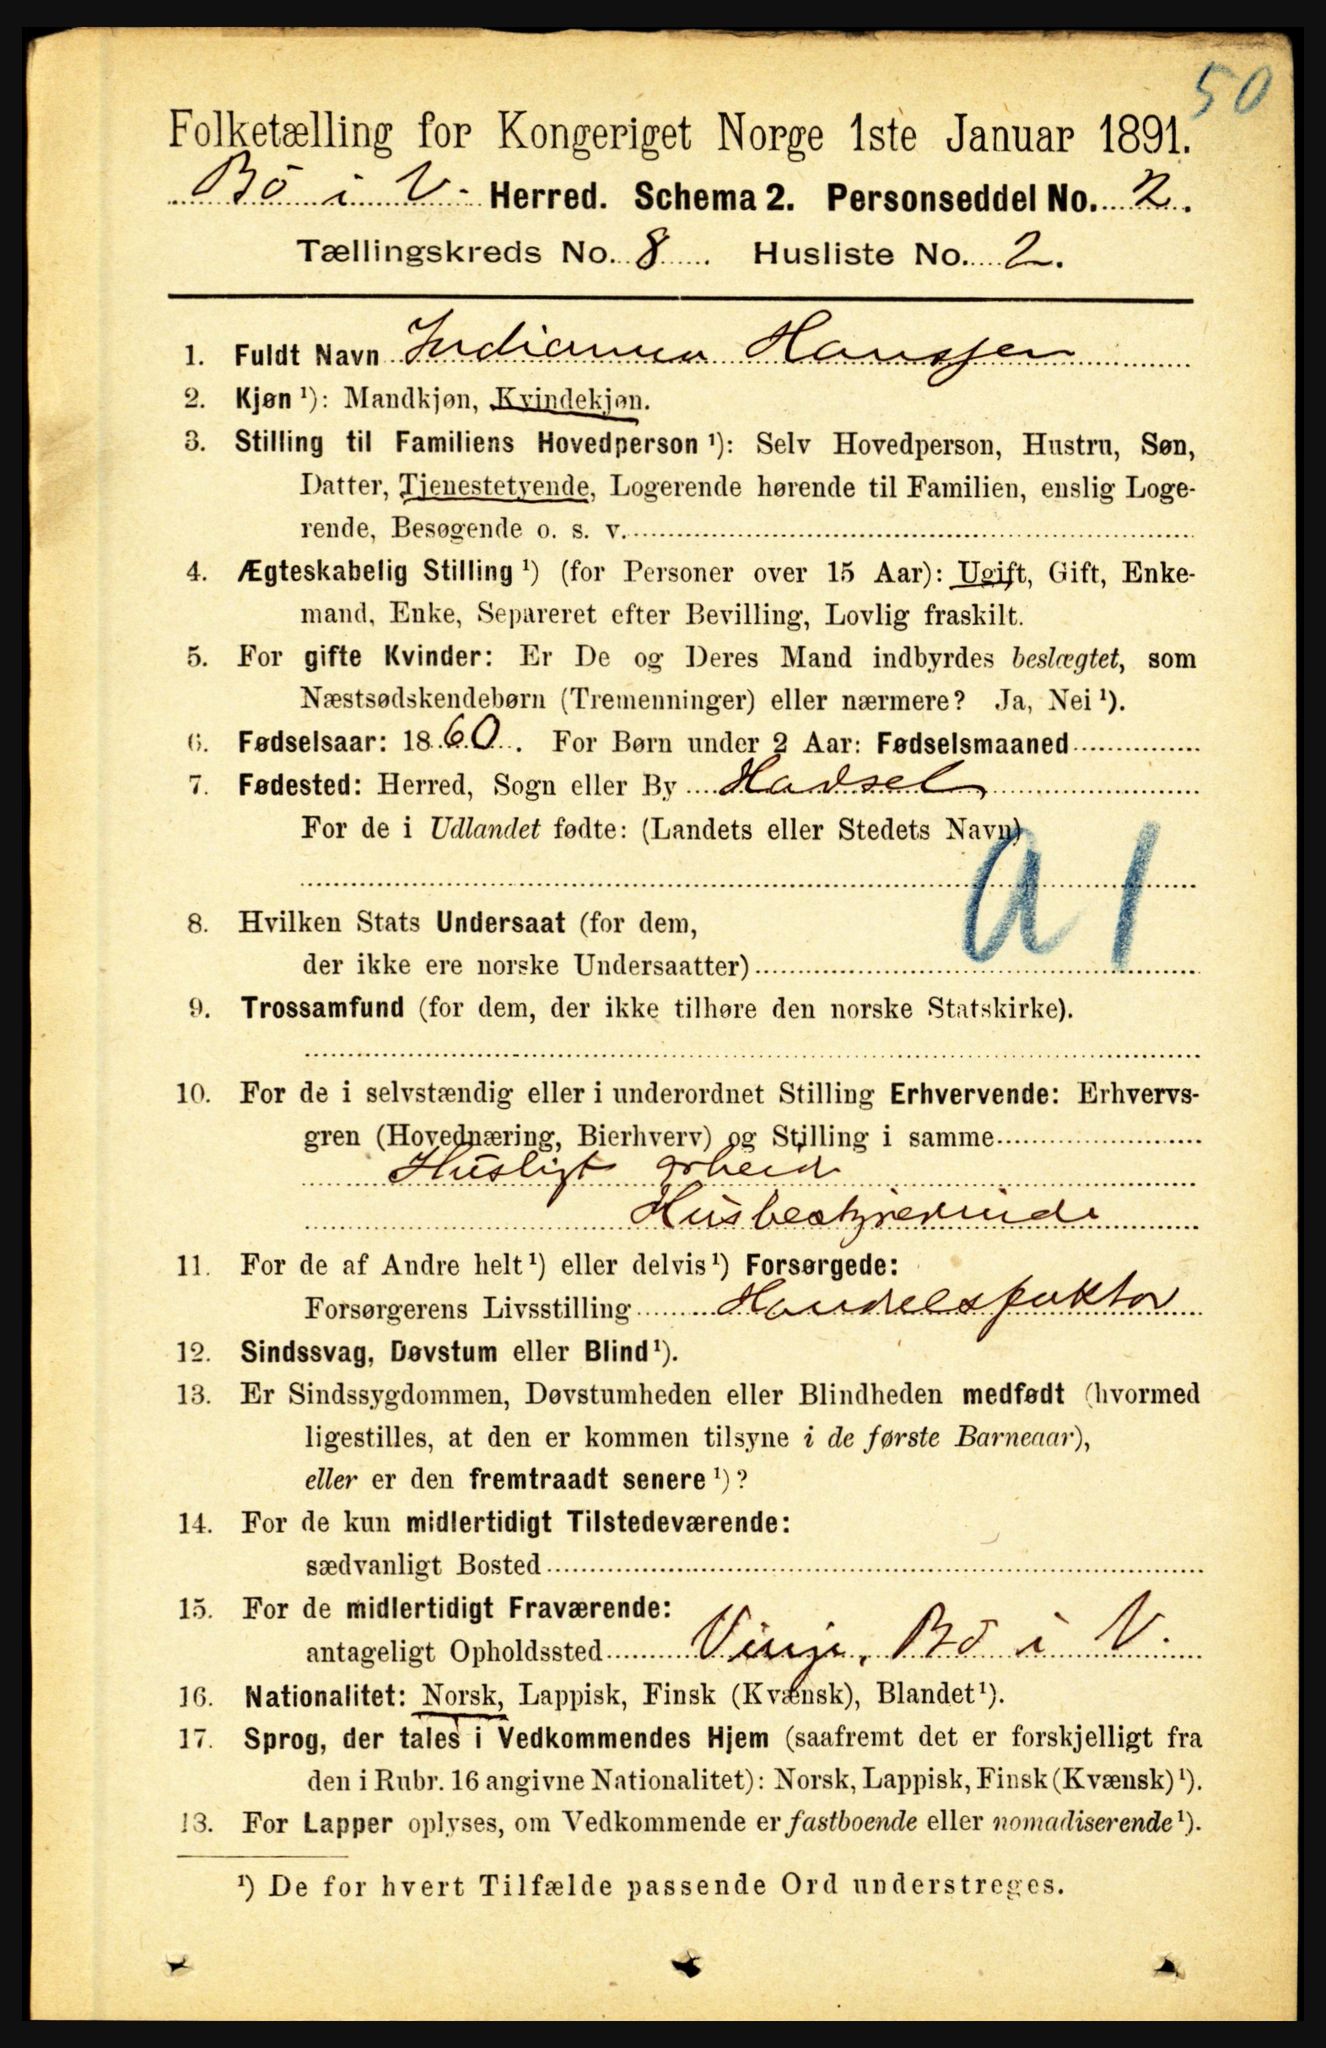 50
Folketælling for Kongeriget Norge 1ste Januar 1891.
Bö i V. Herred. Schema 2. Personseddel No. 2.
Tællingskreds No. 8 Husliste No. 2.
1. Fuldt Navn Indianna Hanssen
2. Kjøn ¹): Mandkjøn, Kvindekjøn.
3. Stilling til Familiens Hovedperson ¹): Selv Hovedperson, Hustru, Søn,
Datter, Tjenestetyende, Logerende hørende til Familien, enslig Loge-
rende, Besøgende o. s. v.
4. Ægteskabelig Stilling ¹) (for Personer over 15 Aar): Ugift, Gift, Enke-
mand, Enke, Separeret efter Bevilling, Lovlig fraskilt.
5. For gifte Kvinder: Er De og Deres Mand indbyrdes beslægtet, som
Næstsødskendebørn (Tremenninger) eller nærmere? Ja, Nei ¹).
6. Fødselsaar: 1860. For Børn under 2 Aar: Fødselsmaaned
7. Fødested: Herred, Sogn eller By Hadsel
For de i Udlandet fødte: (Landets eller Stedets Navn)
a 1
8. Hvilken Stats Undersaat (for dem,
der ikke ere norske Undersaatter)
9. Trossamfund (for dem, der ikke tilhøre den norske Statskirke).
10. For de i selvstændig eller i underordnet Stilling Erhvervende: Erhvervs-
gren (Hovednæring, Bierhverv) og Stilling i samme
Husligt arbeid
Husbestyrerinde
11. For de af Andre helt ¹) eller delvis ¹) Forsørgede:
Forsørgerens Livsstilling Handelsfuktor
12. Sindssvag, Døvstum eller Blind ¹).
13. Er Sindssygdommen, Døvstumheden eller Blindheden medfødt (hvormed
ligestilles, at den er kommen tilsyne i de første Barneaar),
eller er den fremtraadt senere ¹)?
14. For de kun midlertidigt Tilstedeværende:
sædvanligt Bosted
15. For de midlertidigt Fraværende:
antageligt Opholdssted Vinje, Bö i V.
16. Nationalitet: Norsk, Lappisk, Finsk (Kvænsk), Blandet ¹).
17. Sprog, der tales i Vedkommendes Hjem (saafremt det er forskjelligt fra
den i Rubr. 16 angivne Nationalitet): Norsk, Lappisk, Finsk (Kvænsk) ¹).
18. For Lapper oplyses, om Vedkommende er fastboende eller nomadiserende ¹).
¹) De for hvert Tilfælde passende Ord understreges.